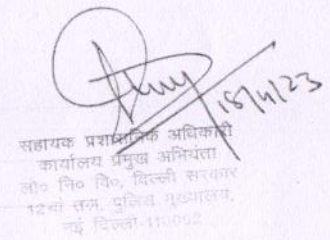 18/11/23
सहायक प्रशासनिक अधिकारी
कार्यालय प्रमुख अभियंता
लो० नि० वि०, दिल्ली सरकार
12वां तल, पुलिस मुख्यालय,
नई दिल्ली-110002